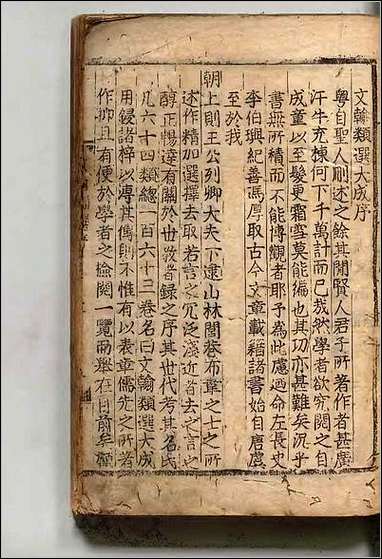 文翰類選大成序
粤自聖人刪述之餘其間賢人君子所著作者甚廣
汗牛充棟何下千萬計而已哉然學者欲究閱之自
成童以至髮更霜雪莫能徧也其功亦甚難矣況乎
書無所積而不能博觀者耶予為此慮迺命左長史
李伯璵紀善馮厚取古今文章載籍諸書始自唐虞
至於我
朝上則王公列卿大夫下逮山林閭巷布韋之士之所
述作精加選擇去取若言之冗泛淺近者去之言之
醇正暢達有關於世教者錄之序其世代考其名氏
凡六十四類總一百六十三卷名曰文翰類選大成
用鋟諸梓以溥其傳則不惟有以表章儒先之所著
作抑且有便於學者之檢閱一覽而舉在目前矣